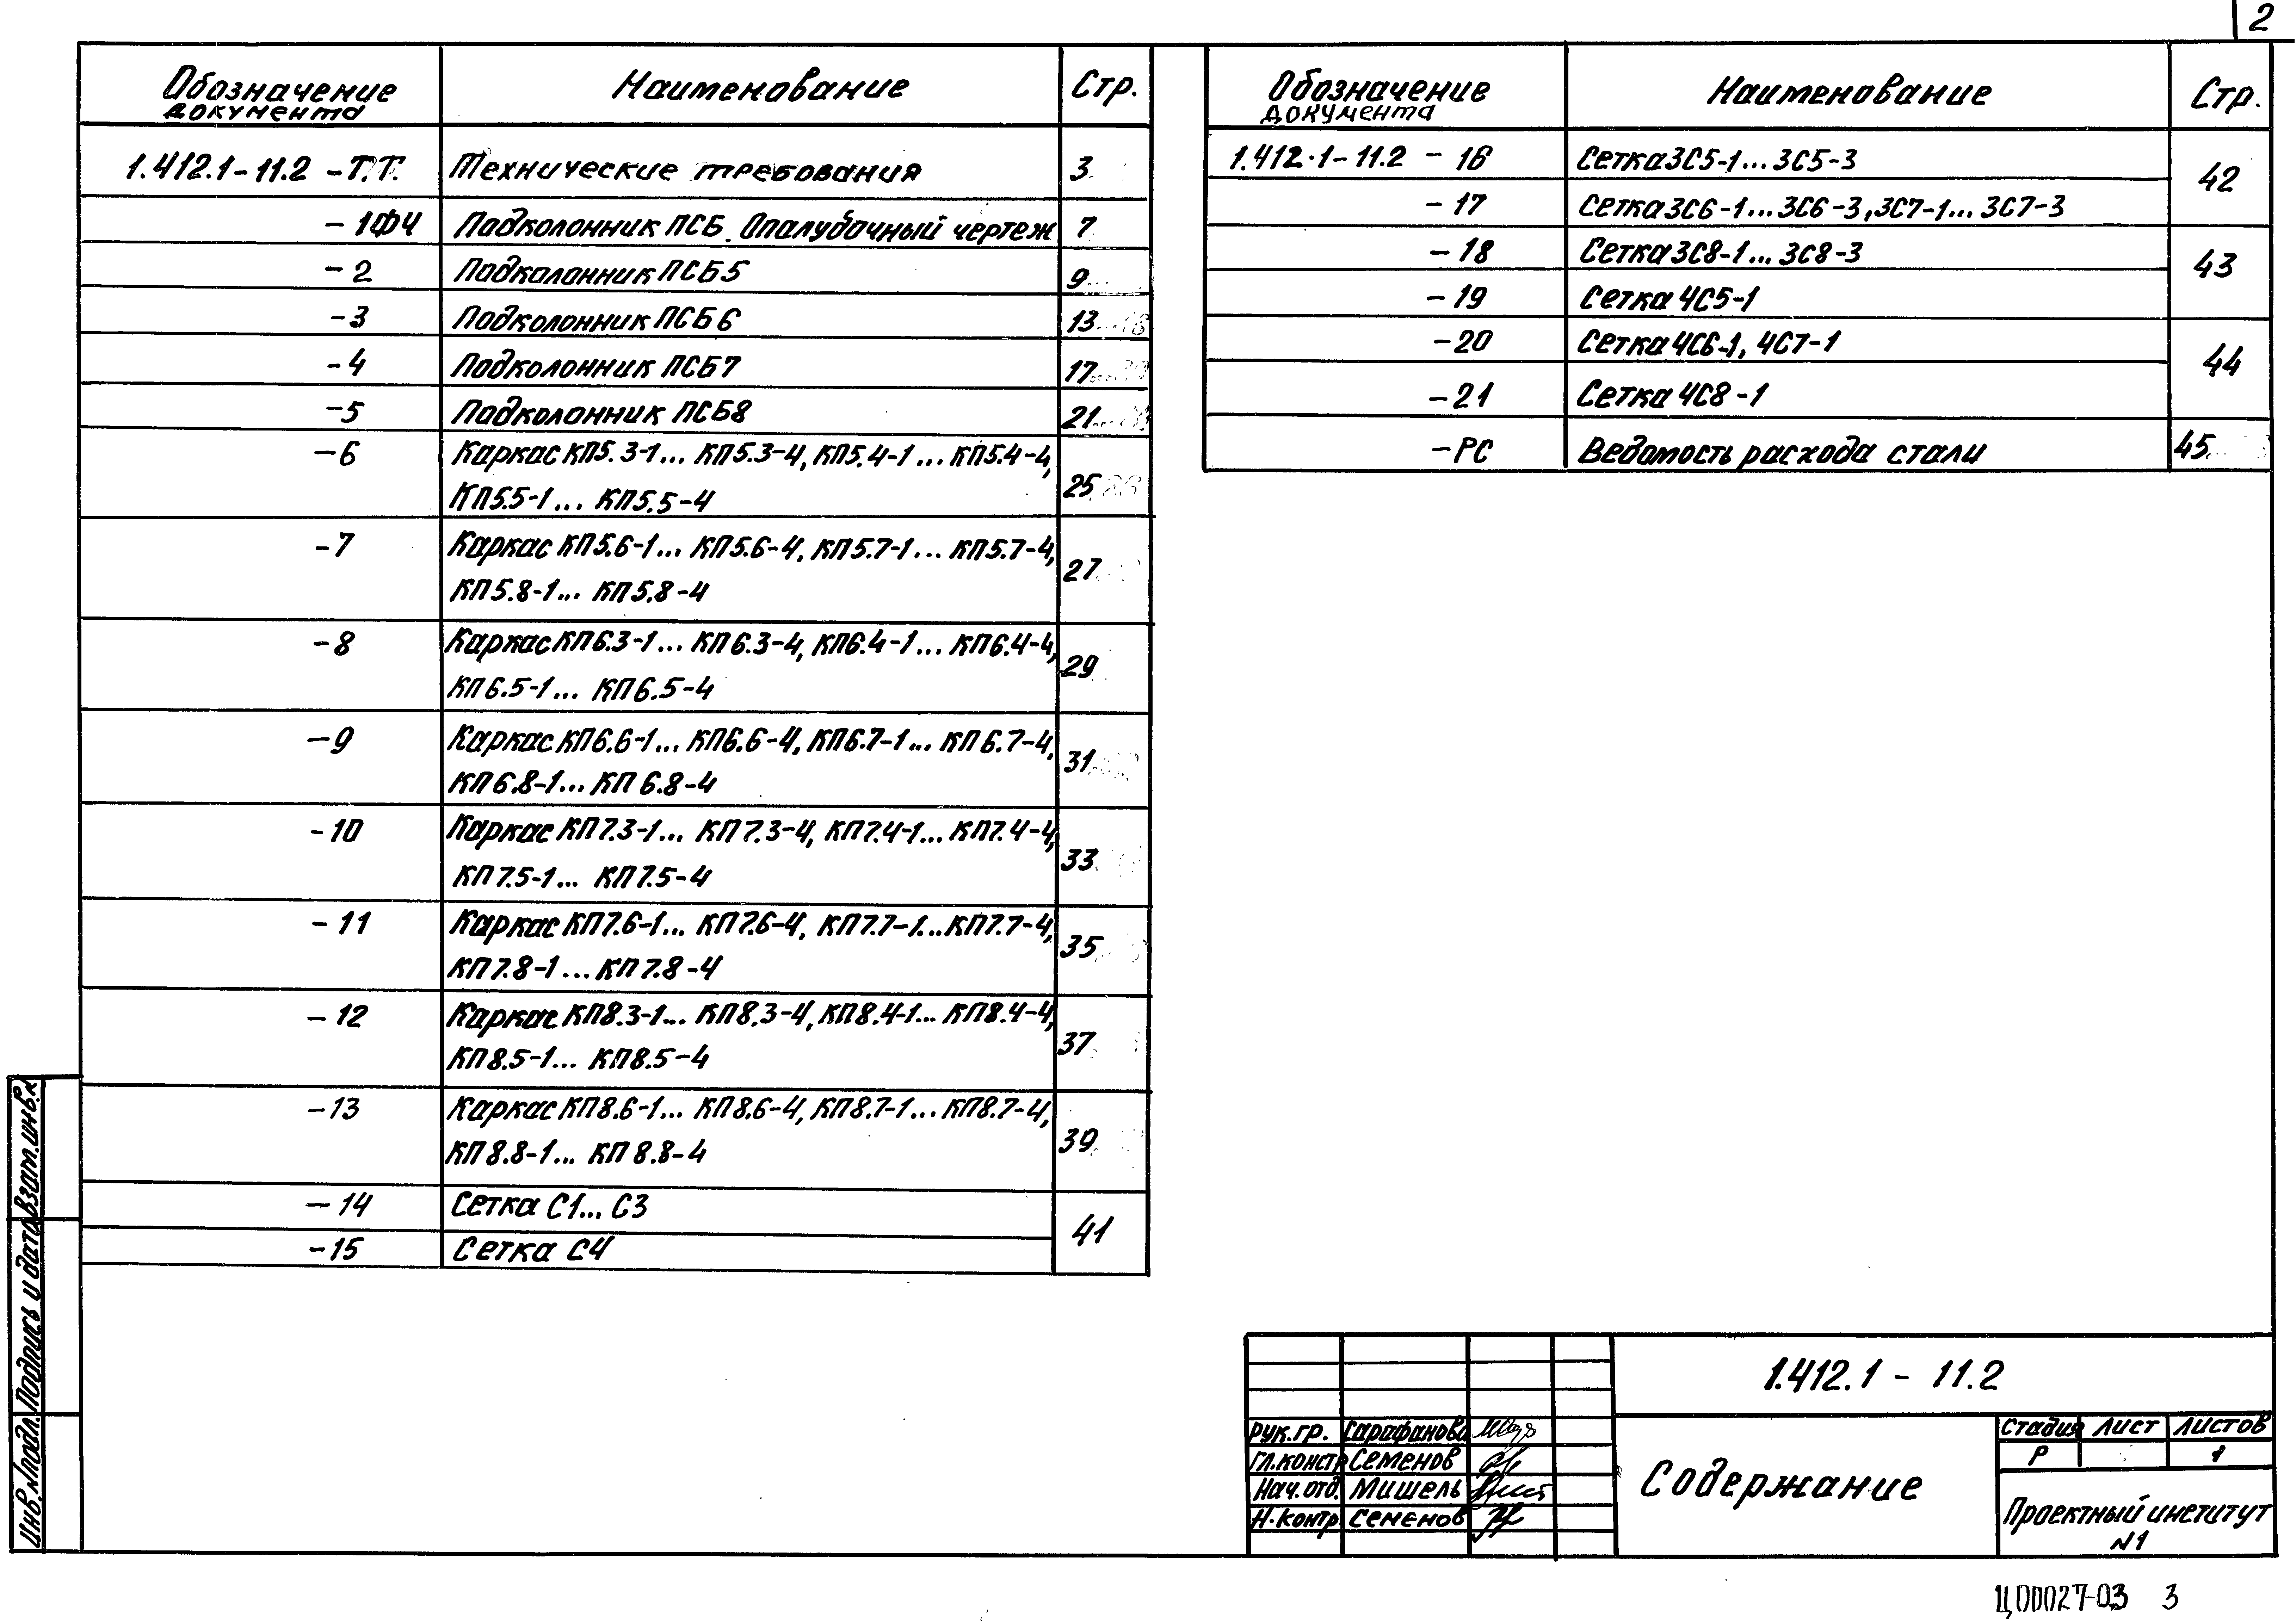 2
Обозначение документа Наименование Стр.
1.412.1-11.2 -Т.Т. Технические требования 3
-1ФЧ Подколонник ПСБ. Опалубочный чертеж 7
-2 Подколонник ПСБ5 9
-3 Подколонник ПСБ6 13
-4 Подколонник ПСБ7 17
-5 Подколонник ПСБ8 21
-6 Каркас КП5.3-1... КП5.3-4, КП5.4-1... КП5.4-4,
КП5.5-1... КП5.5-4 25
-7 Каркас КП5.6-1... КП5.6-4, КП5.7-1... КП5.7-4,
КП5.8-1... КП5.8-4 27
-8 Каркас КП6.3-1... КП6.3-4, КП6.4-1... КП6.4-4,
КП6.5-1... КП6.5-4 29
-9 Каркас КП6.6-1... КП6.6-4, КП6.7-1... КП6.7-4,
КП6.8-1... КП6.8-4 31
-10 Каркас КП7.3-1... КП7.3-4, КП7.4-1... КП7.4-4,
КП7.5-1... КП7.5-4 33
-11 Каркас КП7.6-1... КП7.6-4, КП7.7-1... КП7.7-4,
КП7.8-1... КП7.8-4 35
-12 Каркас КП8.3-1... КП8.3-4, КП8.4-1... КП8.4-4,
КП8.5-1... КП8.5-4 37
-13 Каркас КП8.6-1... КП8.6-4, КП8.7-1... КП8.7-4,
КП8.8-1... КП8.8-4 39
-14 Сетка С1... С3
-15 Сетка С4 41
Обозначение документа Наименование Стр.
1.412.1-11.2 -16 Сетка 3С5-1... 3С5-3 42
-17 Сетка 3С6-1... 3С6-3, 3С7-1... 3С7-3
-18 Сетка 3С8-1... 3С8-3 43
-19 Сетка 4С5-1
-20 Сетка 4С6-1, 4С7-1 44
-21 Сетка 4С8-1
-РС Ведомость расхода стали 45
Инв.№подл. Подпись и дата Взам.инв.№
1.412.1 - 11.2
Рук.гр. Сарафанова
Гл.констр Семенов
Нач.отд. Мишель
Н.контр Семенов
Содержание
Стадия Лист Листов
Р 1
Проектный институт
№1
ЦП0027-03 3